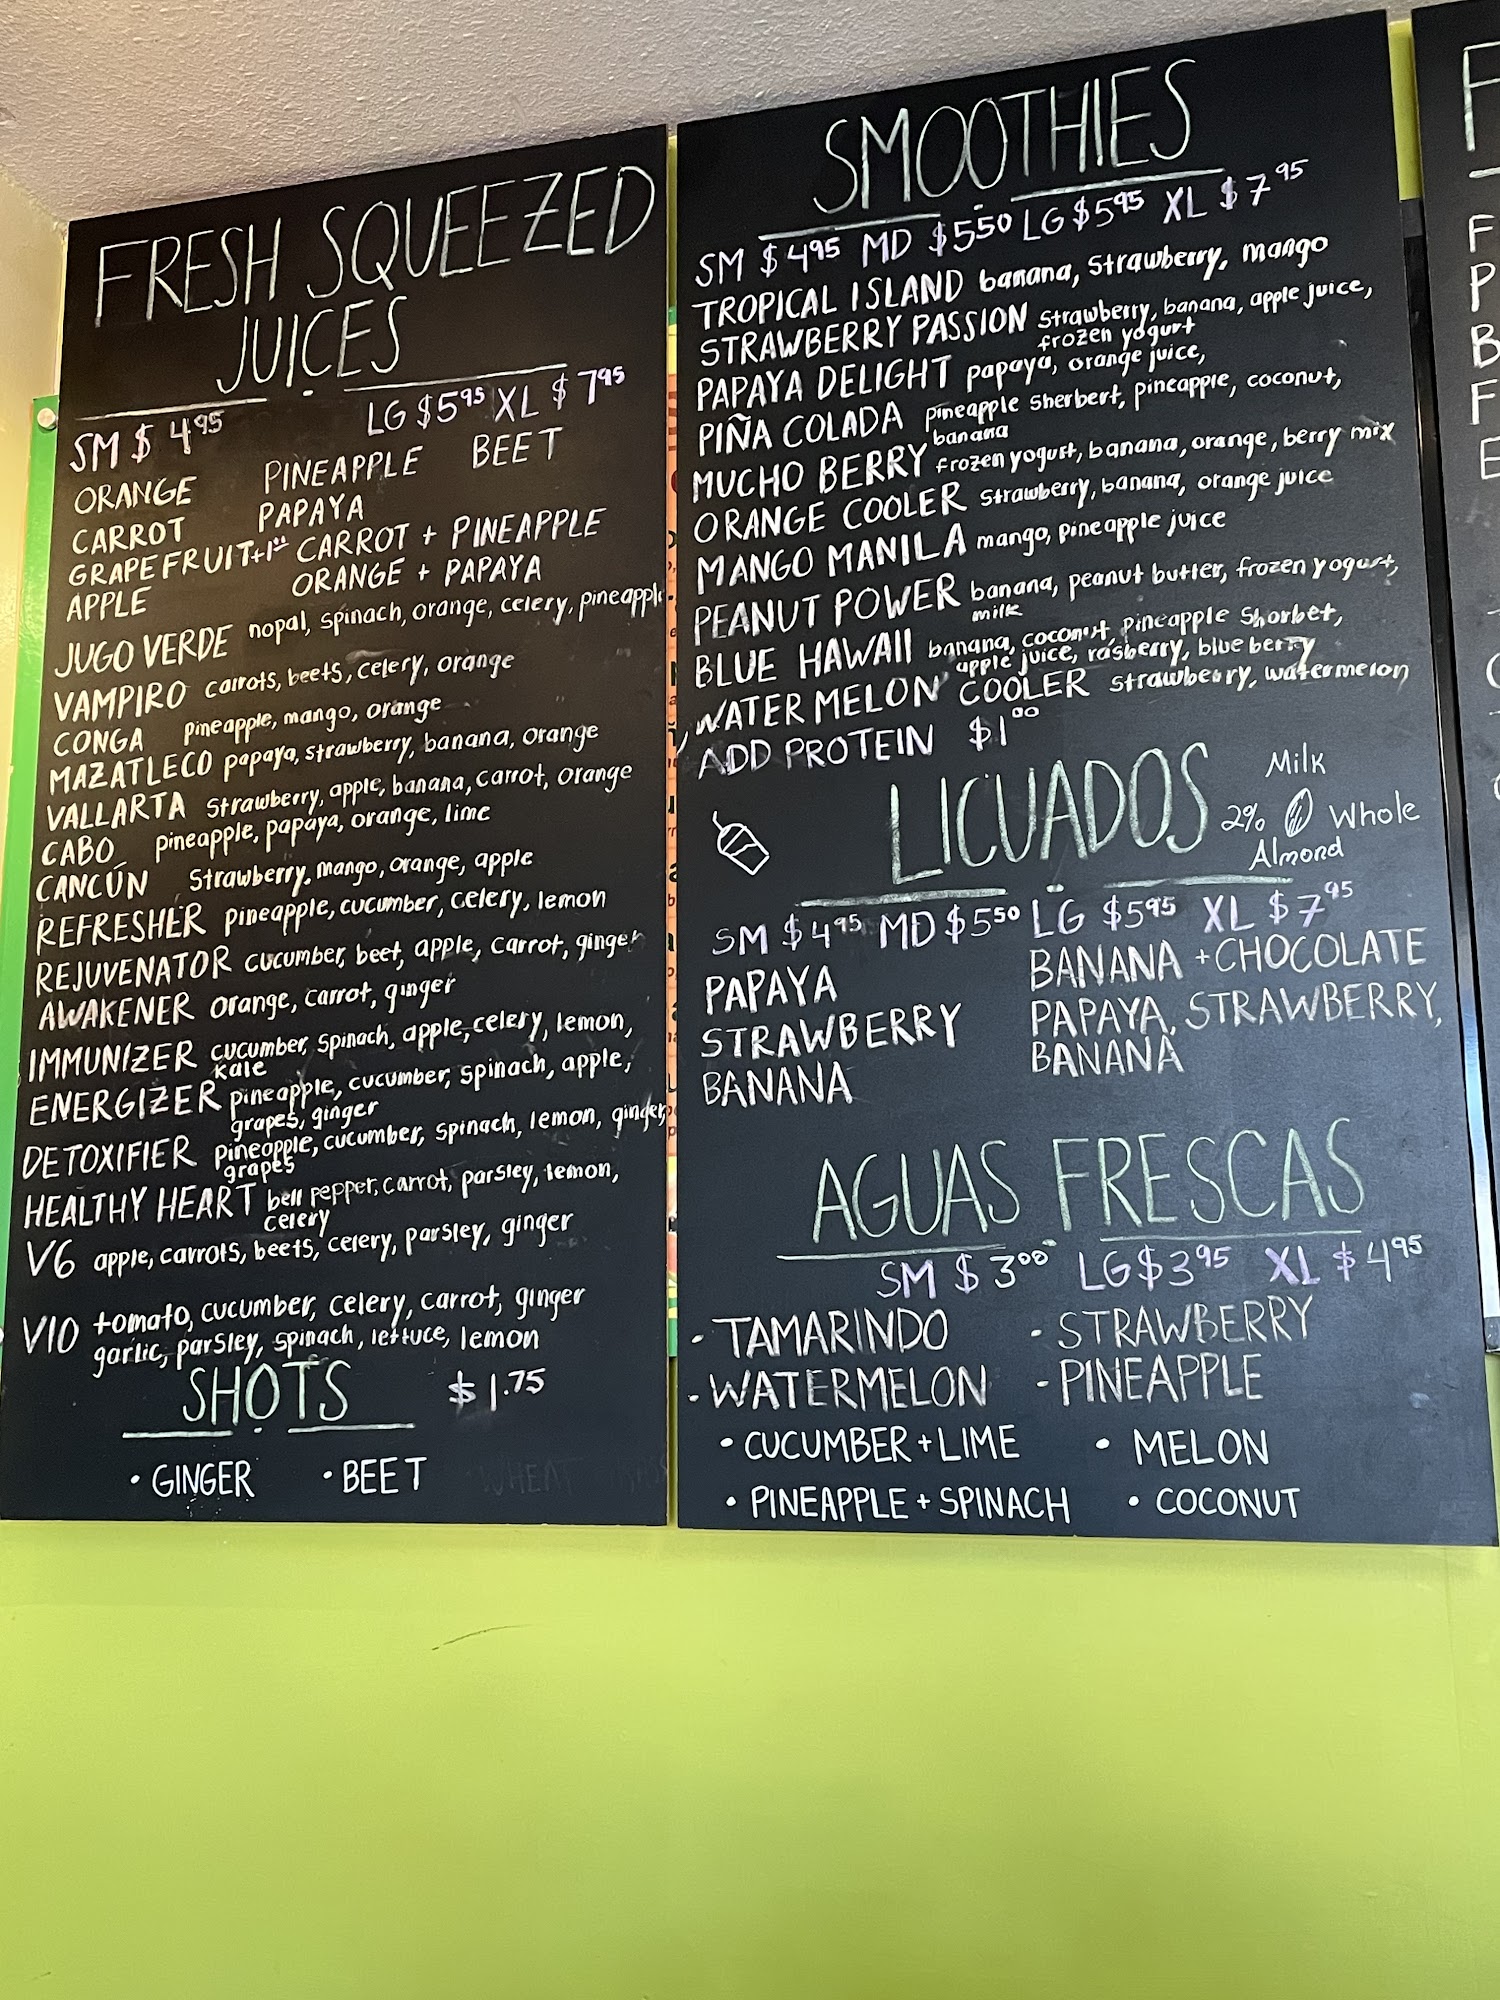 FRESH SQUEEZED
JUICES
SM $ 4.95 LG $5.95 XL $ 7.95
ORANGE PINEAPPLE BEET
CARROT PAPAYA
GRAPEFRUIT+1.00 CARROT + PINEAPPLE
APPLE ORANGE + PAPAYA
JUGO VERDE nopal, spinach, orange, celery, pineapple
VAMPIRO carrots, beets, celery, orange
CONGA pineapple, mango, orange
MAZATLECO papaya, strawberry, banana, orange
VALLARTA strawberry, apple, banana, carrot, orange
CABO pineapple, papaya, orange, lime
CANCÚN strawberry, mango, orange, apple
REFRESHER pineapple, cucumber, celery, lemon
REJUVENATOR cucumber, beet, apple, carrot, ginger
AWAKENER orange, carrot, ginger
IMMUNIZER cucumber, spinach, apple, celery, lemon,
kale
ENERGIZER pineapple, cucumber, spinach, apple,
grapes, ginger
DETOXIFIER pineapple, cucumber, spinach, lemon, ginger,
grapes
HEALTHY HEART bell pepper, carrot, parsley, lemon,
celery
V6 apple, carrots, beets, celery, parsley, ginger
V10 tomato, cucumber, celery, carrot, ginger
garlic, parsley, spinach, lettuce, lemon
SHOTS $ 1.75
• GINGER • BEET WHEAT
SMOOTHIES
SM $ 4.95 MD $5.50 LG $5.95 XL $ 7.95
TROPICAL ISLAND banana, strawberry, mango
STRAWBERRY PASSION strawberry, banana, apple juice,
frozen yogurt
PAPAYA DELIGHT papaya, orange juice,
PIÑA COLADA pineapple sherbert, pineapple, coconut,
banana
MUCHO BERRY frozen yogurt, banana, orange, berry mix
ORANGE COOLER strawberry, banana, orange juice
MANGO MANILA mango, pineapple juice
PEANUT POWER banana, peanut butter, frozen yogurt,
milk
BLUE HAWAII banana, coconut, pineapple shorbet,
apple juice, rasberry, blue berry
WATER MELON COOLER strawberry, watermelon
ADD PROTEIN $1.00
LICUADOS
Milk
2% Whole
Almond
SM $ 4.95 MD $5.50 LG $5.95 XL $ 7.95
PAPAYA BANANA + CHOCOLATE
STRAWBERRY PAPAYA, STRAWBERRY,
BANANA BANANA
AGUAS FRESCAS
SM $ 3.00 LG $3.95 XL $ 4.95
• TAMARINDO • STRAWBERRY
• WATERMELON • PINEAPPLE
• CUCUMBER + LIME • MELON
• PINEAPPLE + SPINACH • COCONUT